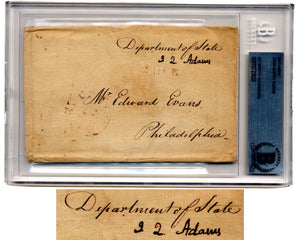 Department of State
J Q Adams
Mr Edward Evans.
Philadelphia.
Department of State
J Q Adams